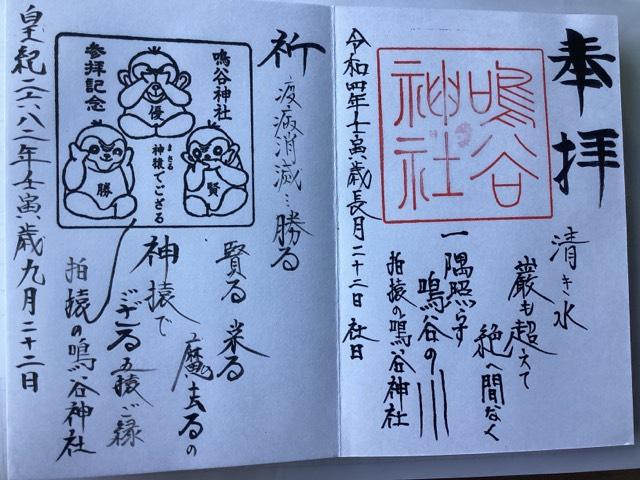 奉拝
清き水
巌も超えて
絶へ間なく
一隅照らす
鳴谷の川
拍猿の鳴谷神社
鳴谷
神社
令和四年壬寅歳長月二十二日 社日
祈
疫病消滅…勝る
賢る 楽る
魔去るの
神猿で
ござる 五猿ご縁
拍猿の鳴谷神社
鳴谷神社
参拝記念
優
勝
賢
まさる
神猿でござる
皇紀二六八二年壬寅歳九月二十二日